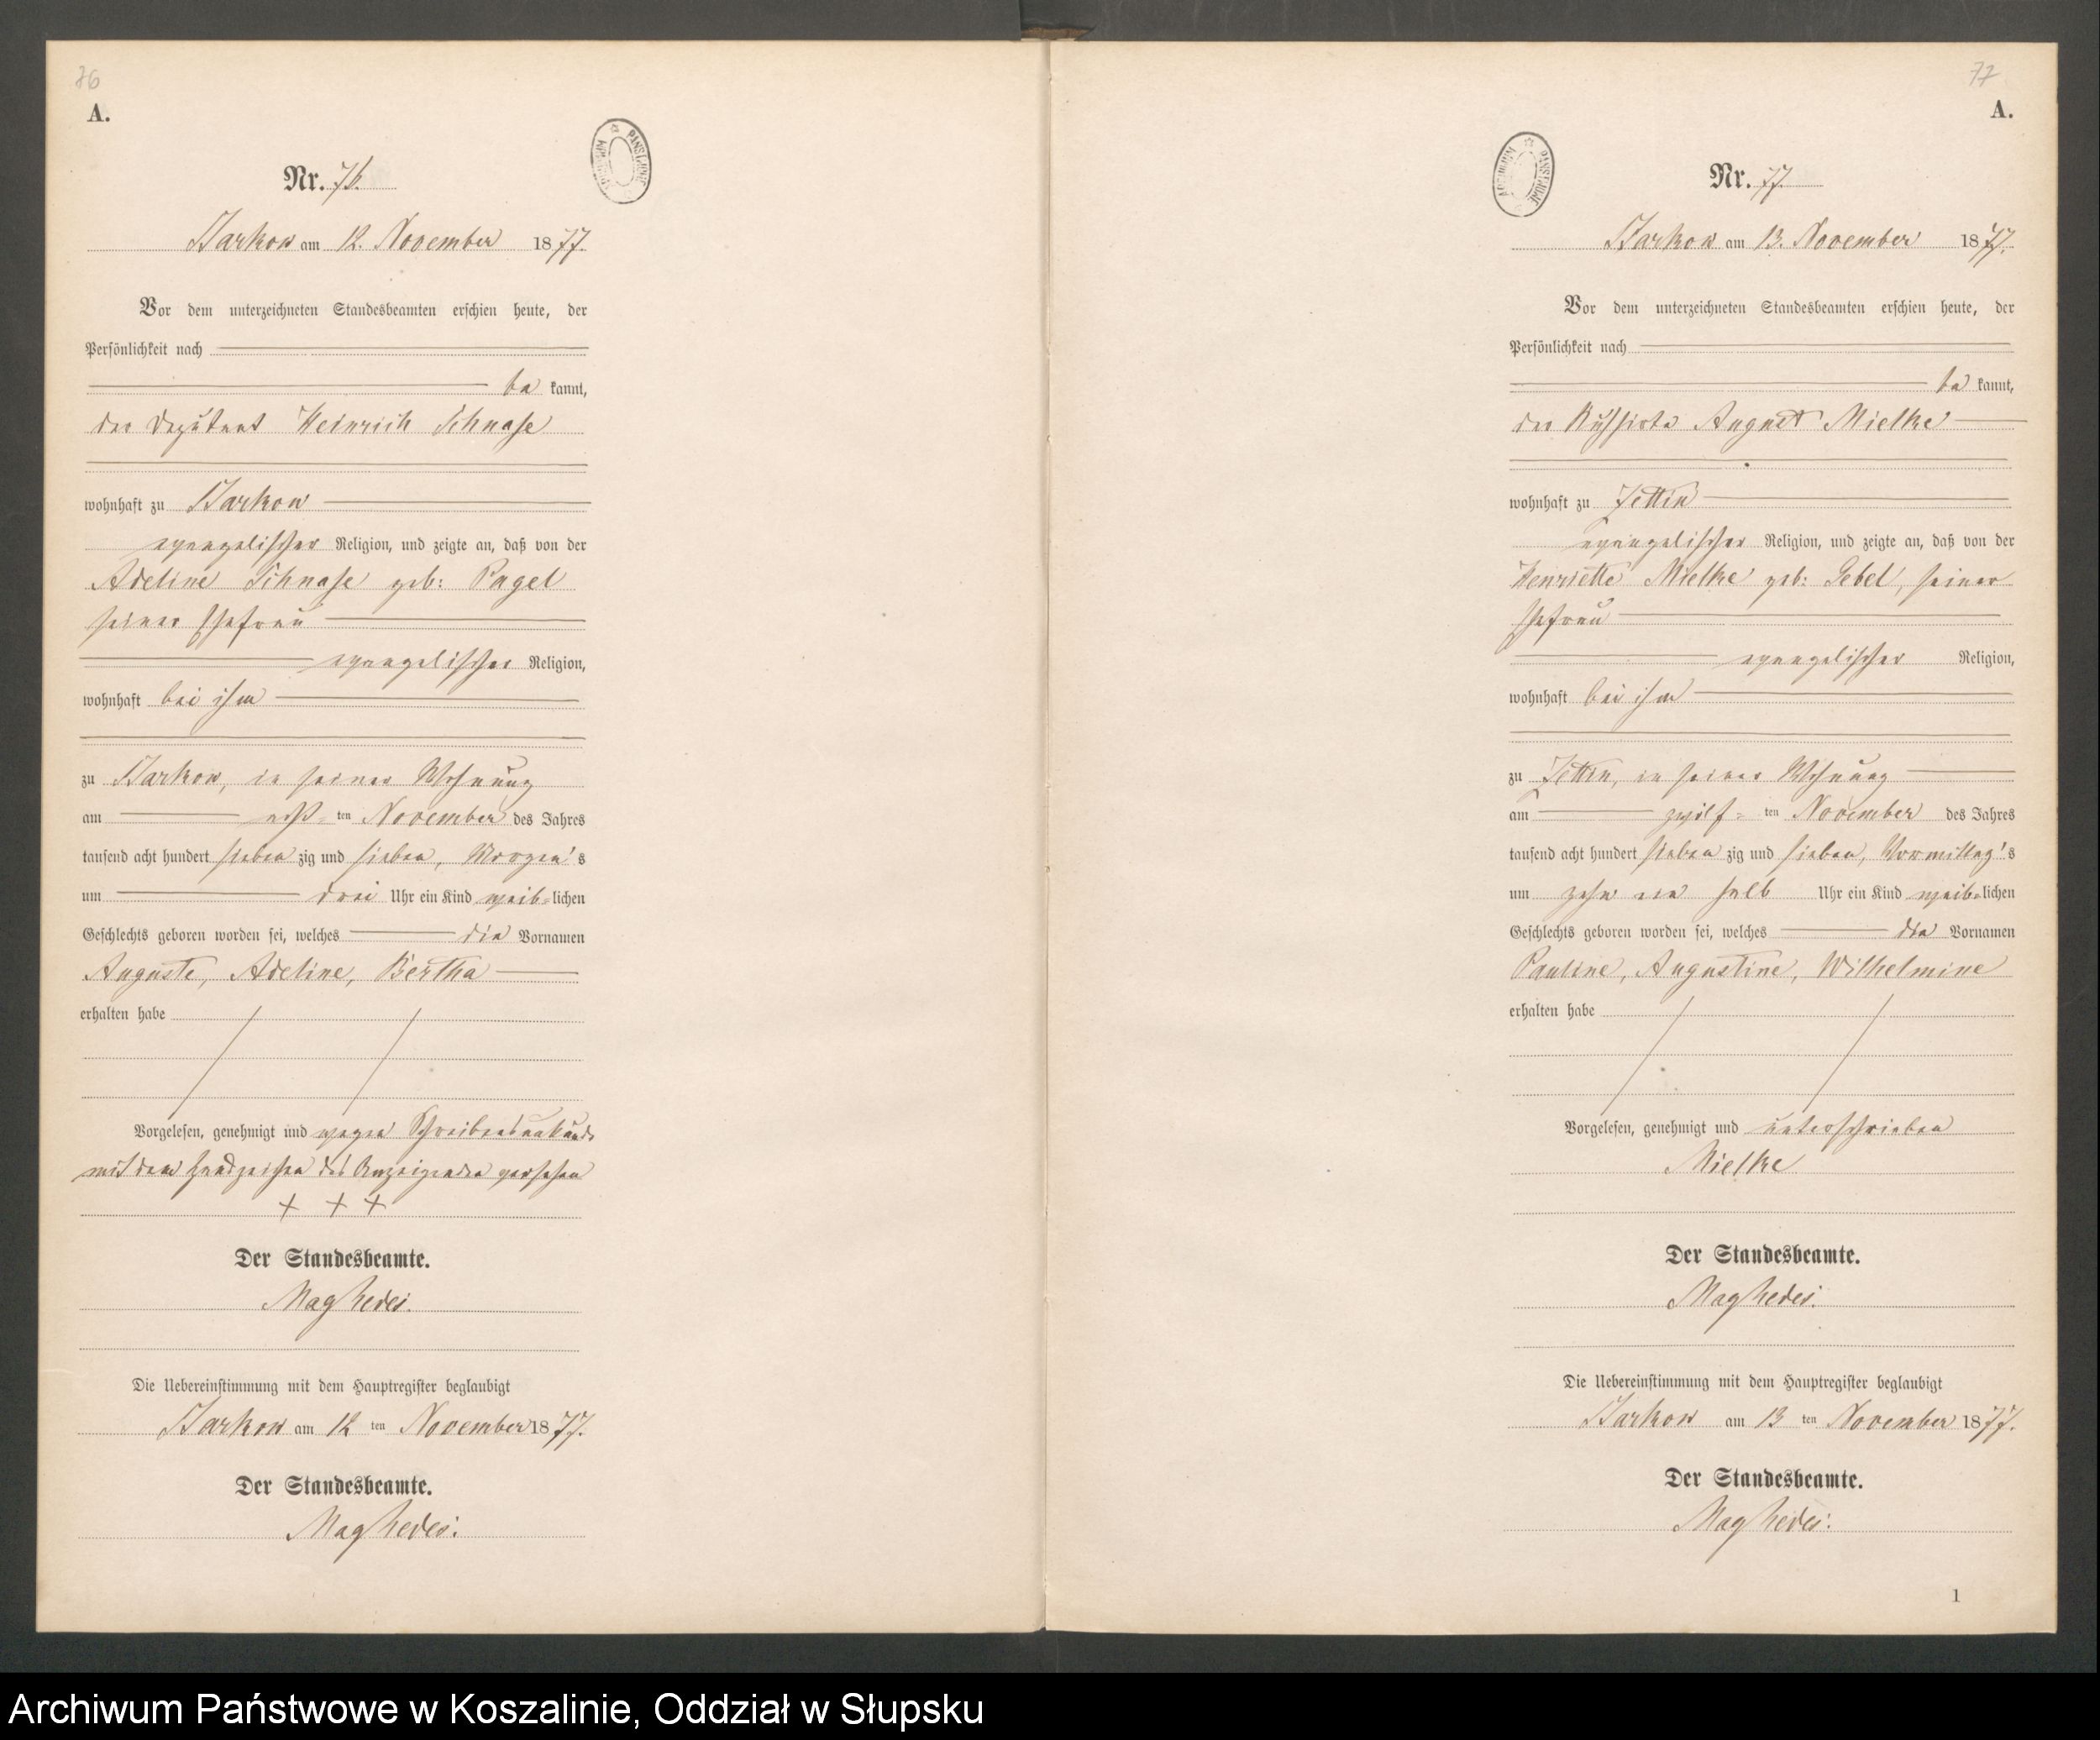 76
A.
Nr. 76.
Barkow am 12. November 1877.
Vor dem unterzeichneten Standesbeamten erschien heute, der
Persönlichkeit nach
be kannt,
der Deputant Heinrich Schnase
wohnhaft zu Barkow
evangelischer Religion, und zeigte an, daß von der
Adeline Schnase geb: Pagel
seiner Ehefrau
evangelischer Religion,
wohnhaft bei ihm
zu Barkow, in seiner Wohnung
am acht= ten November des Jahres
tausend acht hundert sieben zig und sieben, Morgen's
um drei Uhr ein Kind weib=lichen
Geschlechts geboren worden sei, welches die Vornamen
Auguste, Adeline, Bertha
erhalten habe
Vorgelesen, genehmigt und wegen Schreibensunkunde
mit dem Handzeichen des Anzeigenden versehen
+ + +
Der Standesbeamte.
Die Uebereinstimmung mit dem Hauptregister beglaubigt
Barkow am 12 ten November 1877.
Der Standesbeamte.
77
A.
Nr. 77.
Barkow am 13. November 1877.
Vor dem unterzeichneten Standesbeamten erschien heute, der
Persönlichkeit nach
be kannt,
der August Mielke
wohnhaft zu Zettin
evangelischer Religion, und zeigte an, daß von der
Henriette Mielke geb: seiner
Ehefrau
evangelischer Religion,
wohnhaft bei ihm
zu Zettin, in seiner Wohnung
am zwölf= ten November des Jahres
tausend acht hundert sieben zig und sieben, Vormittag's
um zehn ein halb Uhr ein Kind weib=lichen
Geschlechts geboren worden sei, welches die Vornamen
Pauline, Augustine, Wilhelmine
erhalten habe
Vorgelesen, genehmigt und unterschrieben
Mielke
Der Standesbeamte.
Die Uebereinstimmung mit dem Hauptregister beglaubigt
Barkow am 13 ten November 1877.
Der Standesbeamte.
1
Archiwum Państwowe w Koszalinie, Oddział w Słupsku